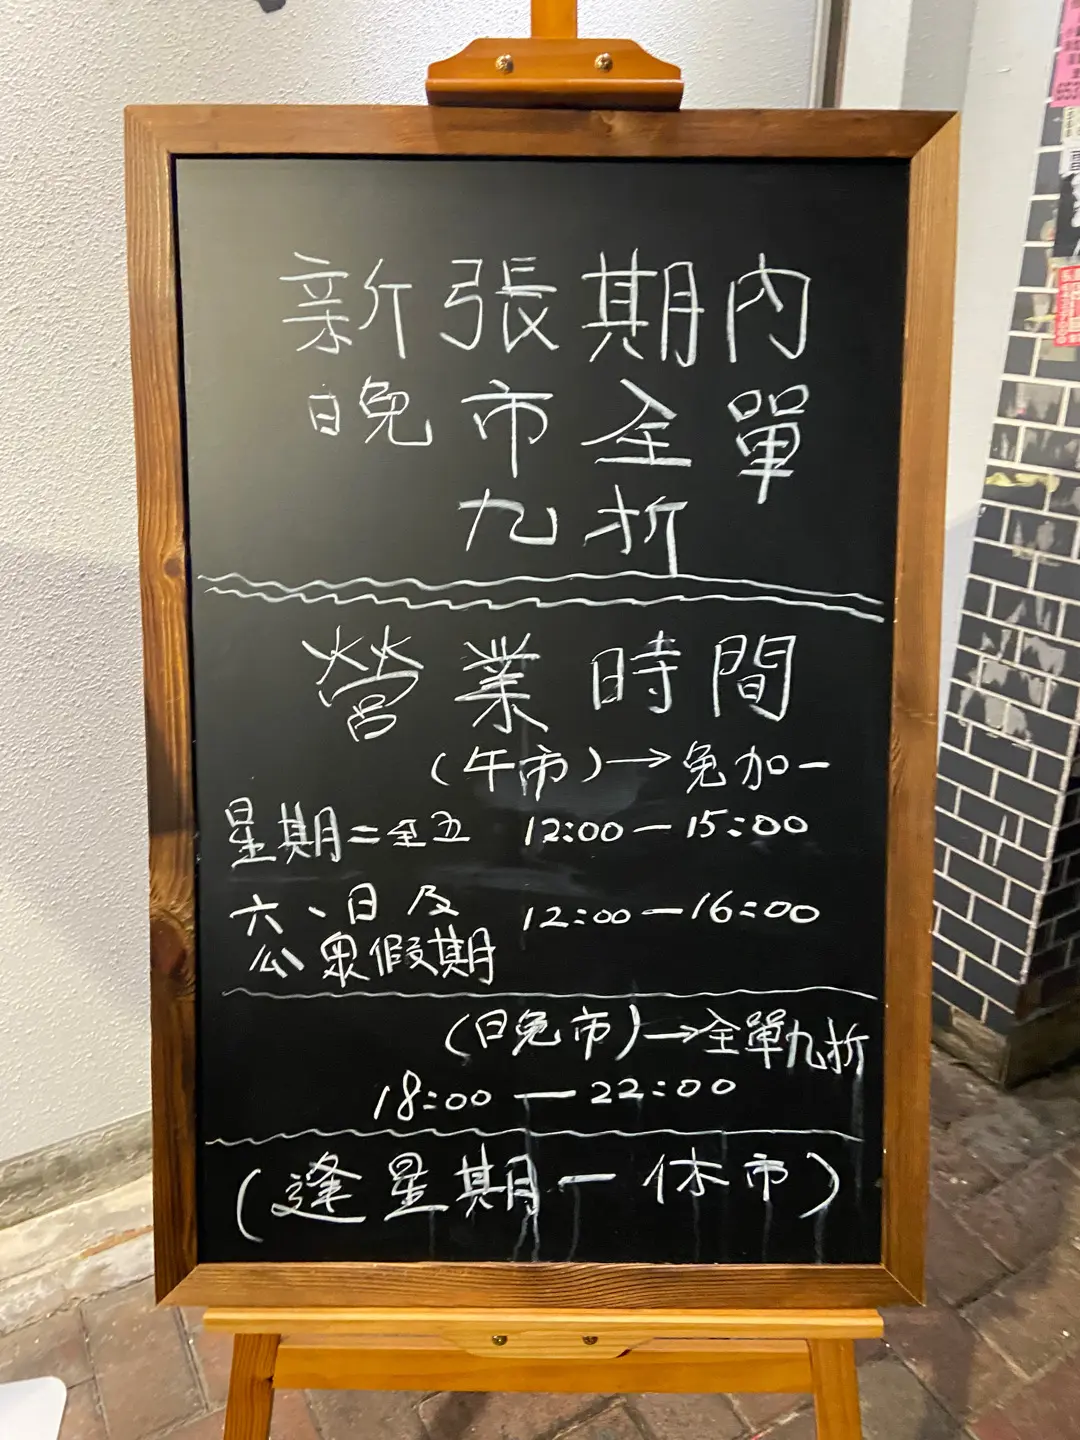 新張期內
晚市全單
九折
營業時間
(午市)→免加一
星期二至五 12:00—15:00
六、日及 12:00—16:00
公眾假期
(晚市)→全單九折
18:00—22:00
(逢星期一休市)